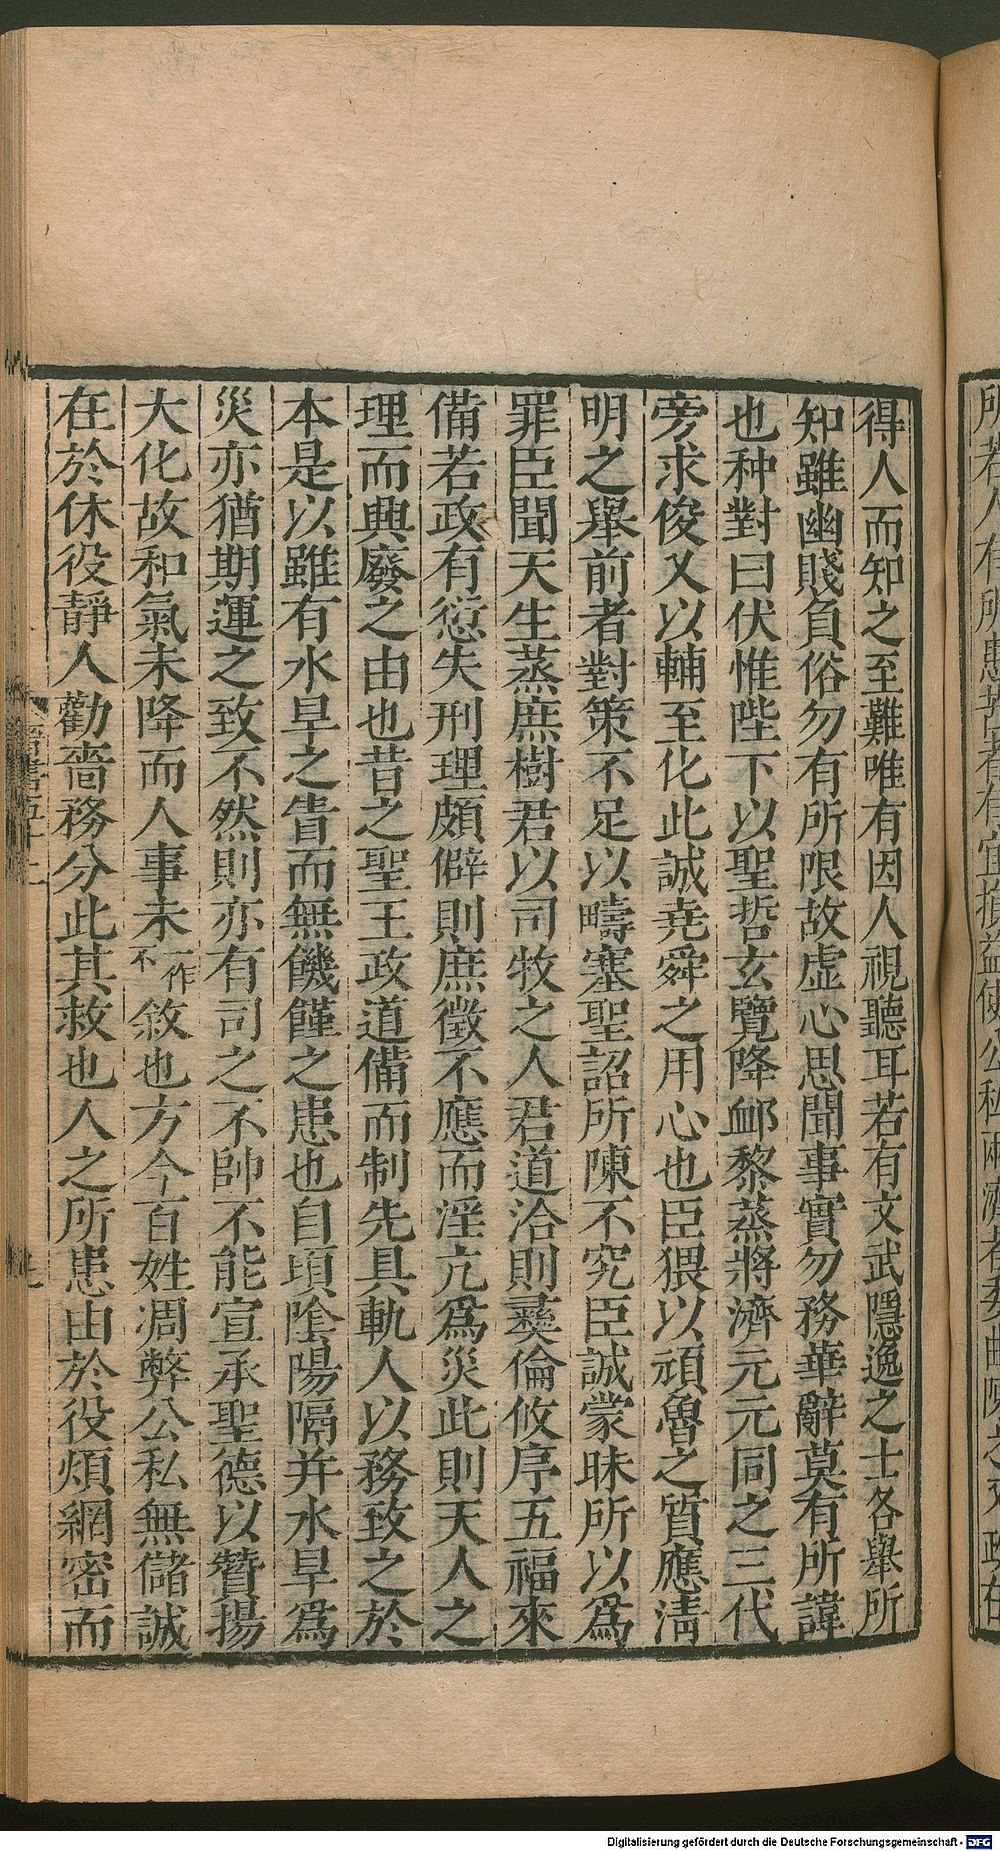 得人而知之至難唯有因人視聽耳若有文武隱逸之士各舉所
知雖幽賤負俗勿有所限故虛心思聞事實勿務華辭莫有所諱
也种對曰伏惟陛下以聖哲玄覽降卹黎蒸將濟元元同之三代
旁求俊乂以輔至化此誠堯舜之用心也臣猥以頑魯之質應清
明之舉前者對策不足以疇塞聖詔所陳不究臣誠蒙昧所以爲
罪臣聞天生蒸庶樹君以司牧之人君道洽則彞倫攸序五福來
備若政有愆失刑理頗僻則庶徵不應而淫亢爲災此則天人之
理而興廢之由也昔之聖王政道備而制先具軌人以務致之於
本是以雖有水旱之眚而無饑饉之患也自頃陰陽隔并水旱爲
災亦猶期運之致不然則亦有司之不帥不能宣承聖德以贊揚
大化故和氣未降而人事未一作不敘也方今百姓凋弊公私無儲誠
在於休役靜人勸嗇務分此其救也人之所患由於役煩網密而
晉書五十二
Digitalisierung gefördert durch die Deutsche Forschungsgemeinschaft - DFG